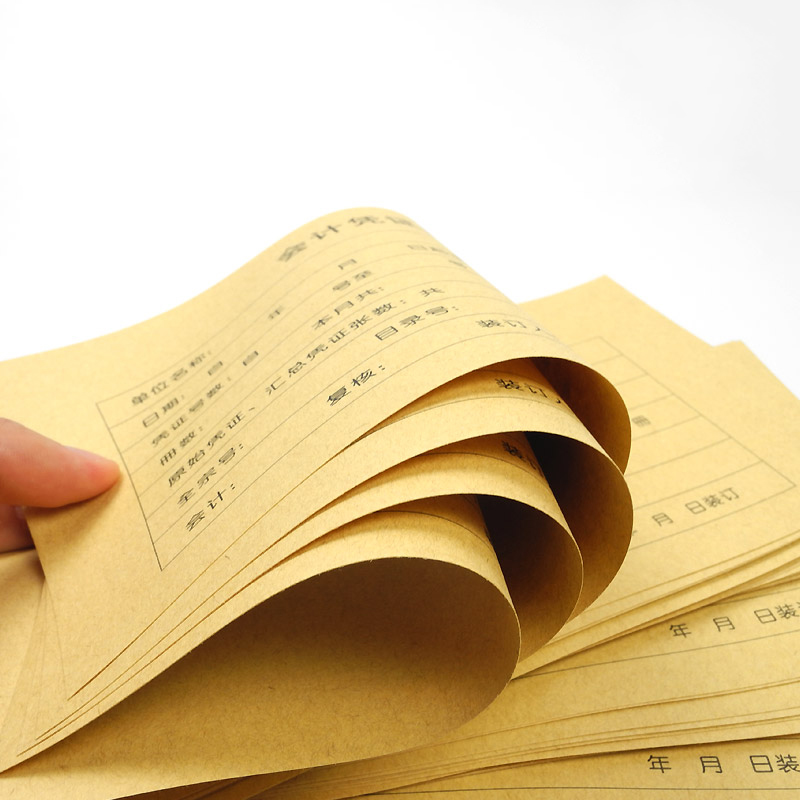 会计凭证
单位名称:
日期: 自 年 月 日起
凭证号数: 自 号至
册数: 本月共:
原始凭证、汇总凭证张数: 共
全宗号: 目录号:
会计: 复核: 装订人
装订
装
月 日装订
年 月 日装订
年 月 日装